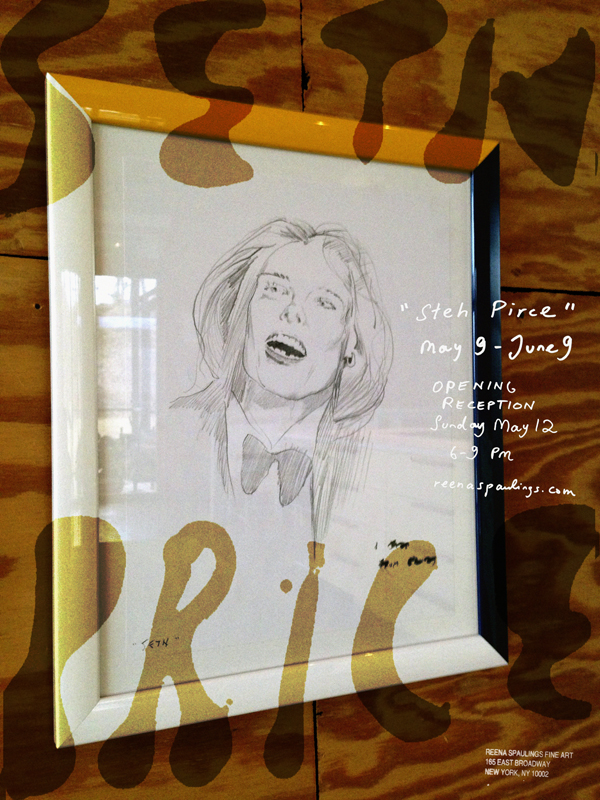 SETH
"Steh Pirce"
May 9 - June 9
OPENING
RECEPTION
Sunday May 12
6-9 pm
reenaspaulings.com
PRICE
"SETH"
REENA SPAULINGS FINE ART
165 EAST BROADWAY
NEW YORK, NY 10002